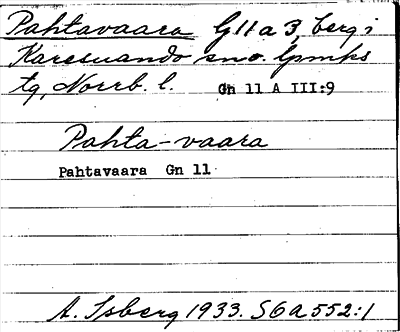 Pahtavaara G11a3, berg i
Karesuando sno. lpmks
tg, Norrb. l. Gn 11 A III:9
Pahta-vaara
Pahtavaara Gn 11
A. Isberg 1933. S6a552:1